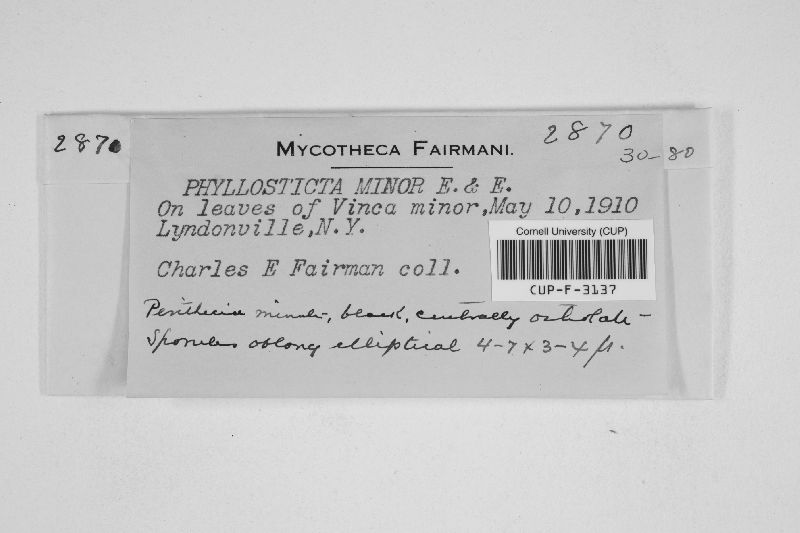 2870
MYCOTHECA FAIRMANI.
2870
30-80
PHYLLOSTICTA MINOR E. & E.
On leaves of Vinca minor, May 10, 1910
Lyndonville, N. Y.
Charles E Fairman coll.
Cornell University (CUP)
CUP-F-3137
Perithecia minute, black, centrally ostiolate -
Sporules oblong elliptical 4-7 x 3-4 µ.